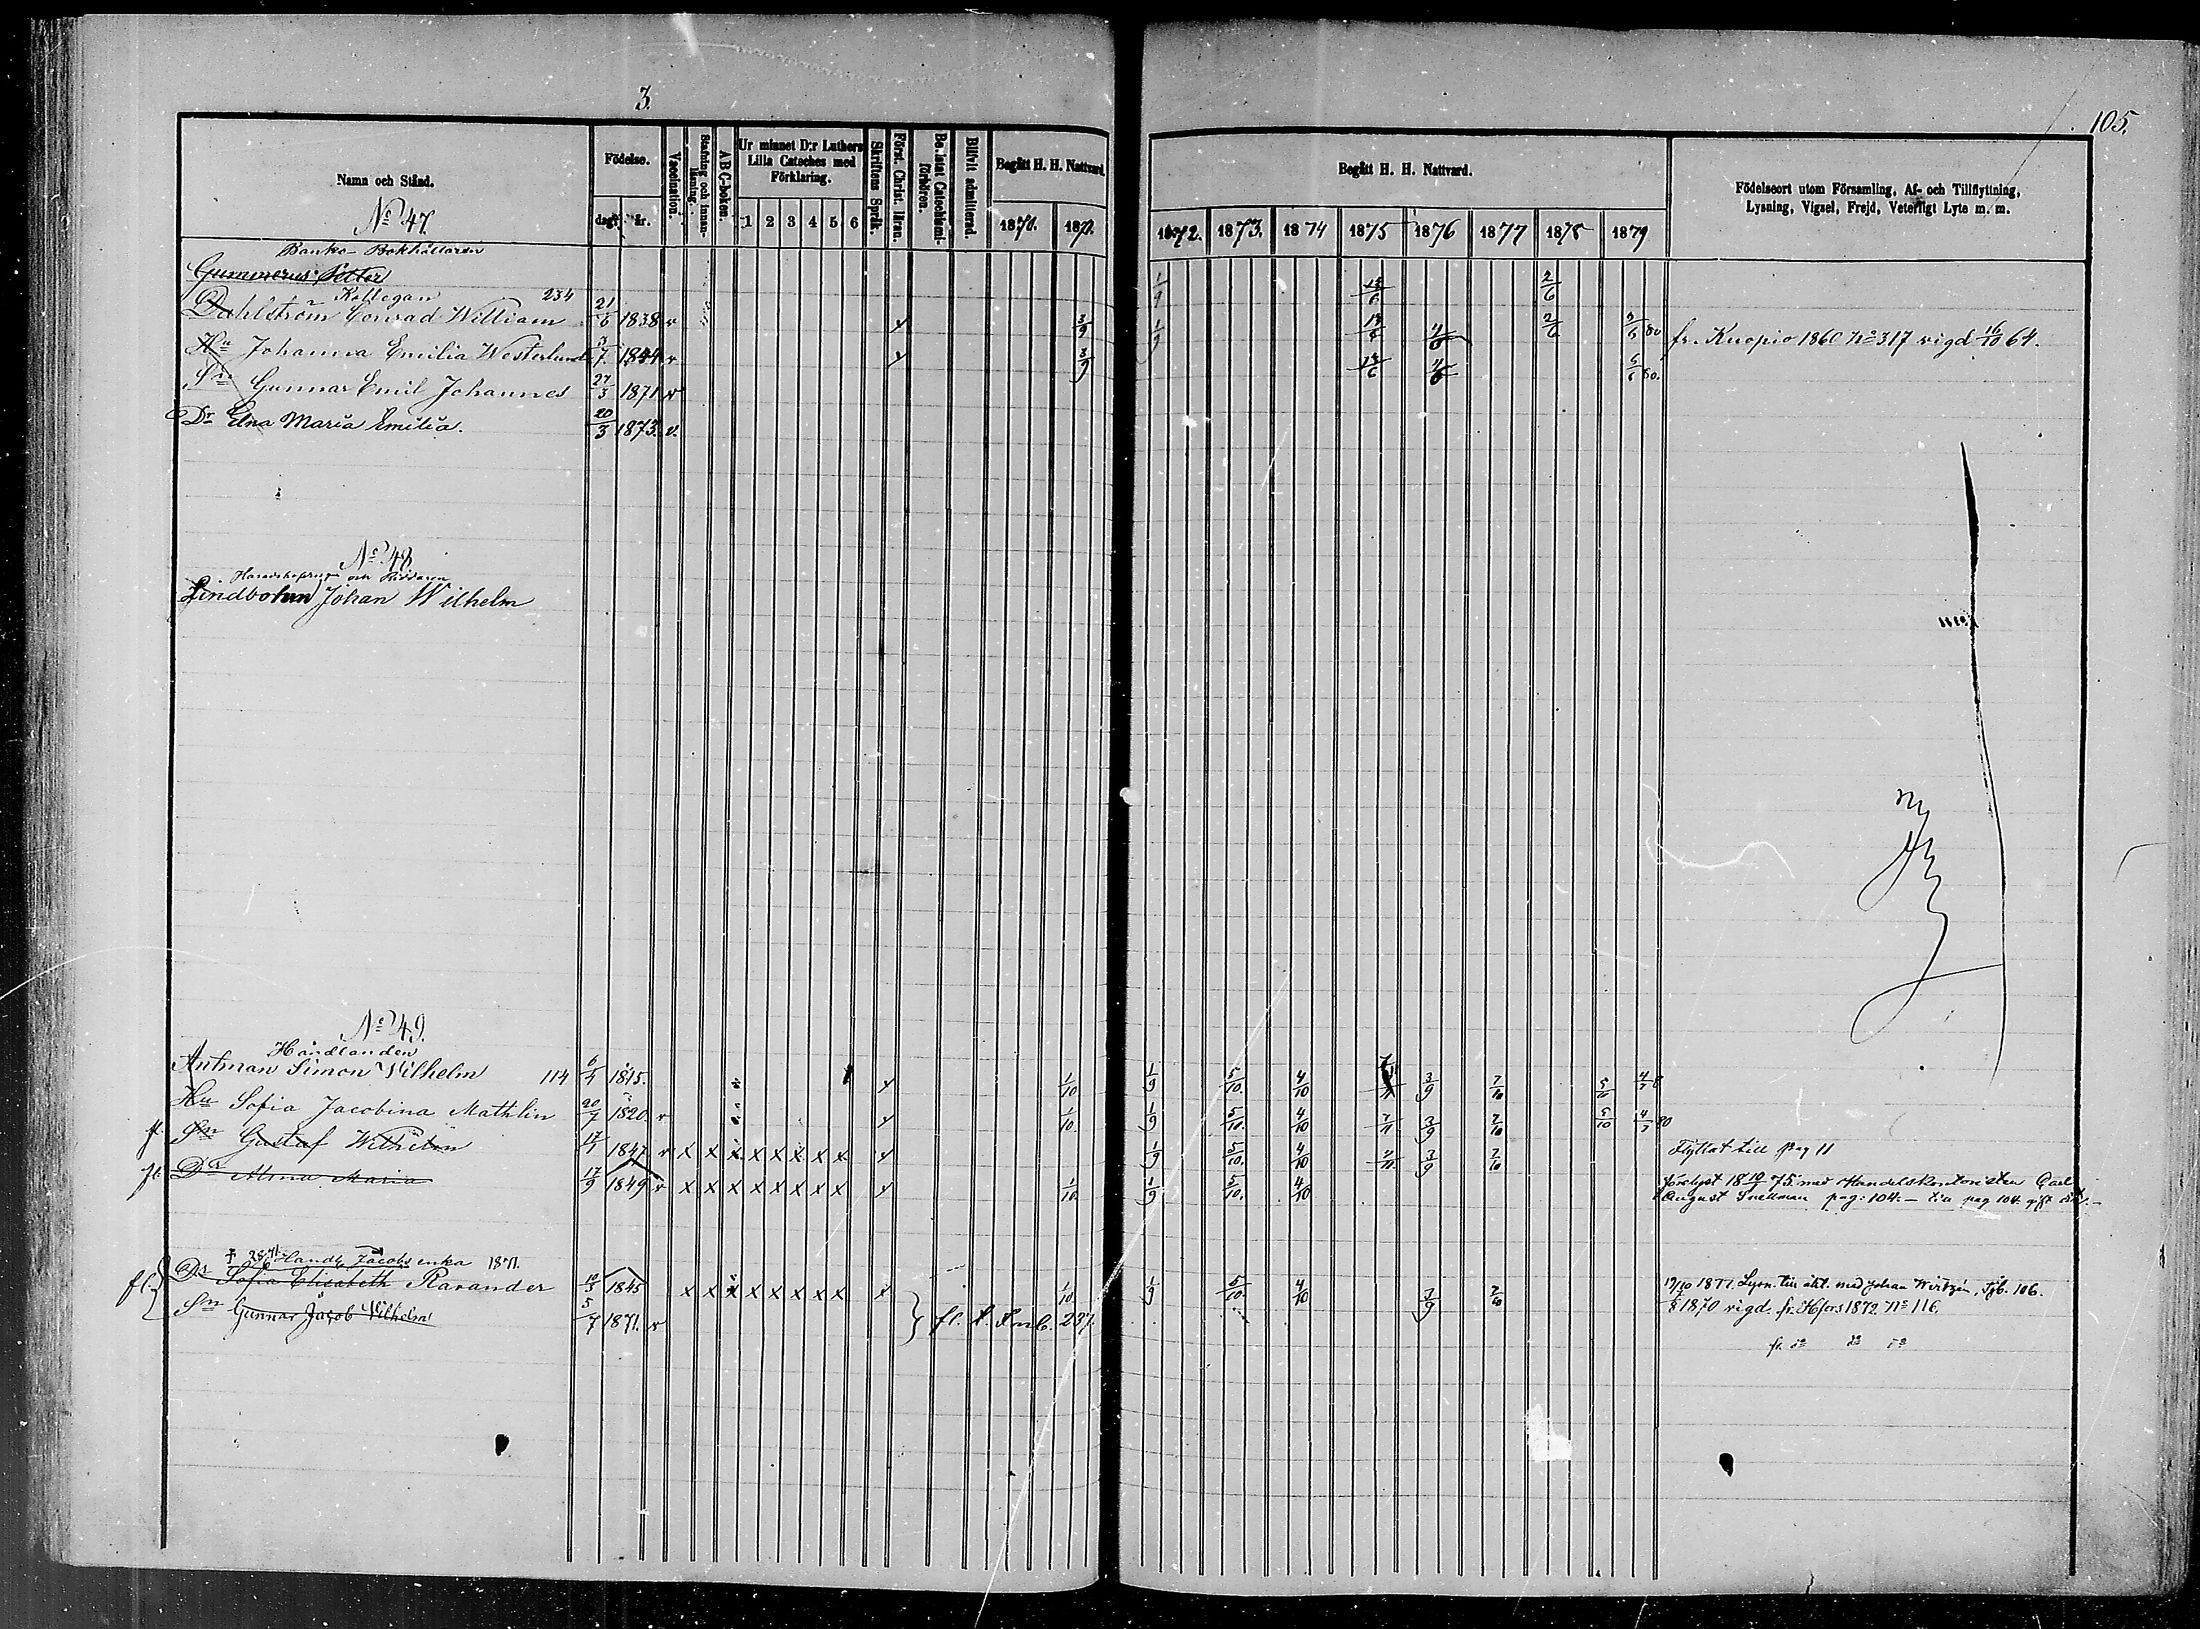 3.
105.
Namn och Stånd.
Födelse.
dag.
år.
Vaccination.
Stafning och innan-läsning.
ABC-boken.
Ur minnet D:r Luthers Lilla Cateches med Förklaring.
1 2 3 4 5 6
Skriftens Språk.
Först. Christ. läran.
Bevistat Catechismi-förhören.
Blifvit admitterad.
Begått H. H. Nattvard.
1870. 1871.
Begått H. H. Nattvard.
1872. 1873. 1874 1875 1876 1877 1878 1879
Födelseort utom Församling, Af- och Tillflyttning,
Lysning, Vigsel, Frejd, Veterligt Lyte m. m.
No 47.
Banko-Bokhållaren
Gummerus Petter
Kollegan 234
Dahlström Conrad William 21/6 1838 v 3/9 1/9 2/6 fr. Kuopio 1860 No 317 vigd 16/10 64.
Hu Johanna Emilia Westerlund 1844 v 3/9
Sn Gunnar Emil Johannes 27/3 1871 v
Dr Edna Maria Emilia. 20/3 1873. v.
No 48
Häradshöfdingen och Riddaren
Lindbohm Johan Wilhelm
No 49.
Handlanden
Antman Simon Wilhelm 114 1815. 1/10 1/9 5/10. 4/10 3/9 7/10 5/10
Hu Sofia Jacobina Mathlin 20/7 1820. v 1/10. 1/9 5/10. 4/10 7/11 3/9 7/10 5/10 4/7 80
fl. Sn Gustaf Wilhelm 1847 v x x x x x x x x 1/9 5/10. 4/10 7/11 3/9 7/10 Flyttat till pag 11
fl. Dr Alma Maria 17/9 1849 v x x x x x x x x 1/10. 1/9 5/10. 4/10 75 med Handelskontoristen Carl
August Snellman pag: 104.
Handl. Jacobs enka 1871.
fl. Dr Sofia Elisabeth Ravander 1845 x x x x x x x x 1/10. 1/9 5/10. 4/10 3/9 7/10 1877. Lysn. till äkt. med Johan Wirtzén, 106.
Sn Gunnar Jacob Wilhelm 5/7 1871. v fl. 237. 1870 vigd. fr. Hfors 1872. No 116.
fr. do do do